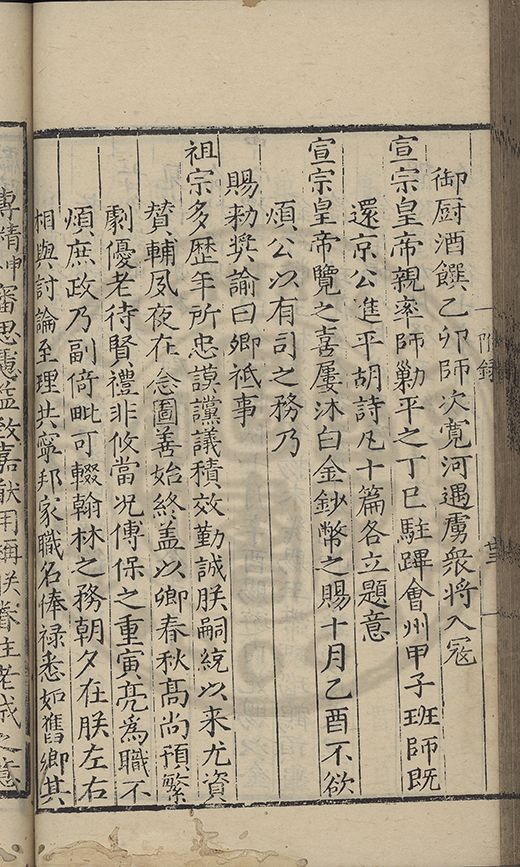 附録
廿三
御厨酒饌乙卯師次寛河遇虜衆將入冦
宣宗皇帝親率師勦平之丁巳駐蹕會州甲子班師既
還京公進平胡詩凡十篇各立題意
宣宗皇帝覽之喜屢沐白金鈔幣之賜十月乙酉不欲
煩公以有司之務乃
賜勑奬諭曰卿祗事
祖宗多歴年所忠謨讜議積效勤誠朕嗣統以来尤資
賛輔夙夜在念圖善始終盖以卿春秋髙尚預繁
劇優老待賢禮非攸當况傅保之重寅亮為職不
煩庶政乃副倚毗可輟翰林之務朝夕在朕左右
相與討論至理共寧邦家職名俸禄悉如舊卿其
專精神審思慮益致嘉猷用稱朕眷注老成之意